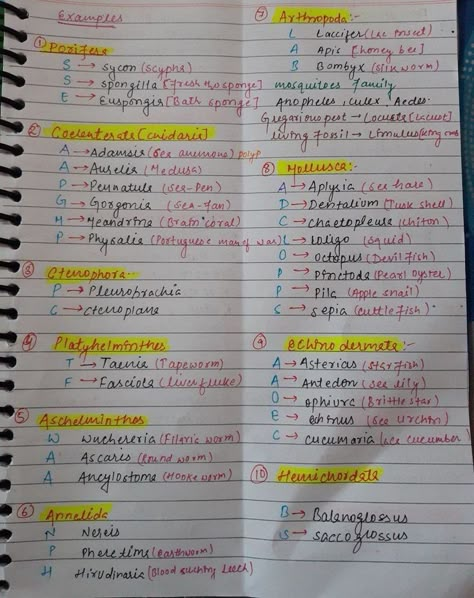 Examples
① Porifera
S → Sycon (Scypha)
S → Spongilla [Fresh H2O sponge]
E → Euspongis [Bath sponge]
② Coelenterata [Cnidaria]
A → Adamsia (Sea anemone) polyp
A → Aurelia (Medusa)
P → Pennatula (Sea-Pen)
G → Gorgonia (Sea-fan)
M → Meandrina (Brain coral)
P → Physalia (Portuguese man of war)
③ Ctenophora
P → Pleurobrachia
C → Ctenoplana
④ Platyhelminthes
T → Taenia (Tapeworm)
F → Fasciola (liverfluke)
⑤ Aschelminthes
W Wuchereria (Filaria worm)
A Ascaris (Round worm)
A Ancylostoma (Hookeworm)
⑥ Annelida
N Nereis
P Pheretima (earthworm)
H Hirudinaria (Blood sucking leech)
⑦ Arthropoda:-
L Laccifer (Lac insect)
A Apis [honey bee]
B Bombyx (Silkworm)
mosquitoes family
Anopheles, Culex, Aedes.
Gregarious pest → Locusta (Locust)
living fossil → Limulus (King crab
⑧ Mollusca:-
A → Aplysia (Sea hare)
D → Dentalium (Tusk shell)
C → Chaetopleura (Chiton)
L → Loligo (Squid)
O → Octopus (Devil fish)
P → Pinctada (Pearl oyster)
P → Pila (Apple snail)
S → Sepia (Cuttlefish)
⑨ Echinodermata:-
A → Asterias (Starfish)
A → Antedon (Sea lily)
O → Ophiura (Brittle star)
E → Echinus (Sea Urchin)
C → Cucumaria (Sea cucumber)
⑩ Hemichordata
B → Balanoglossus
S → Saccoglossus